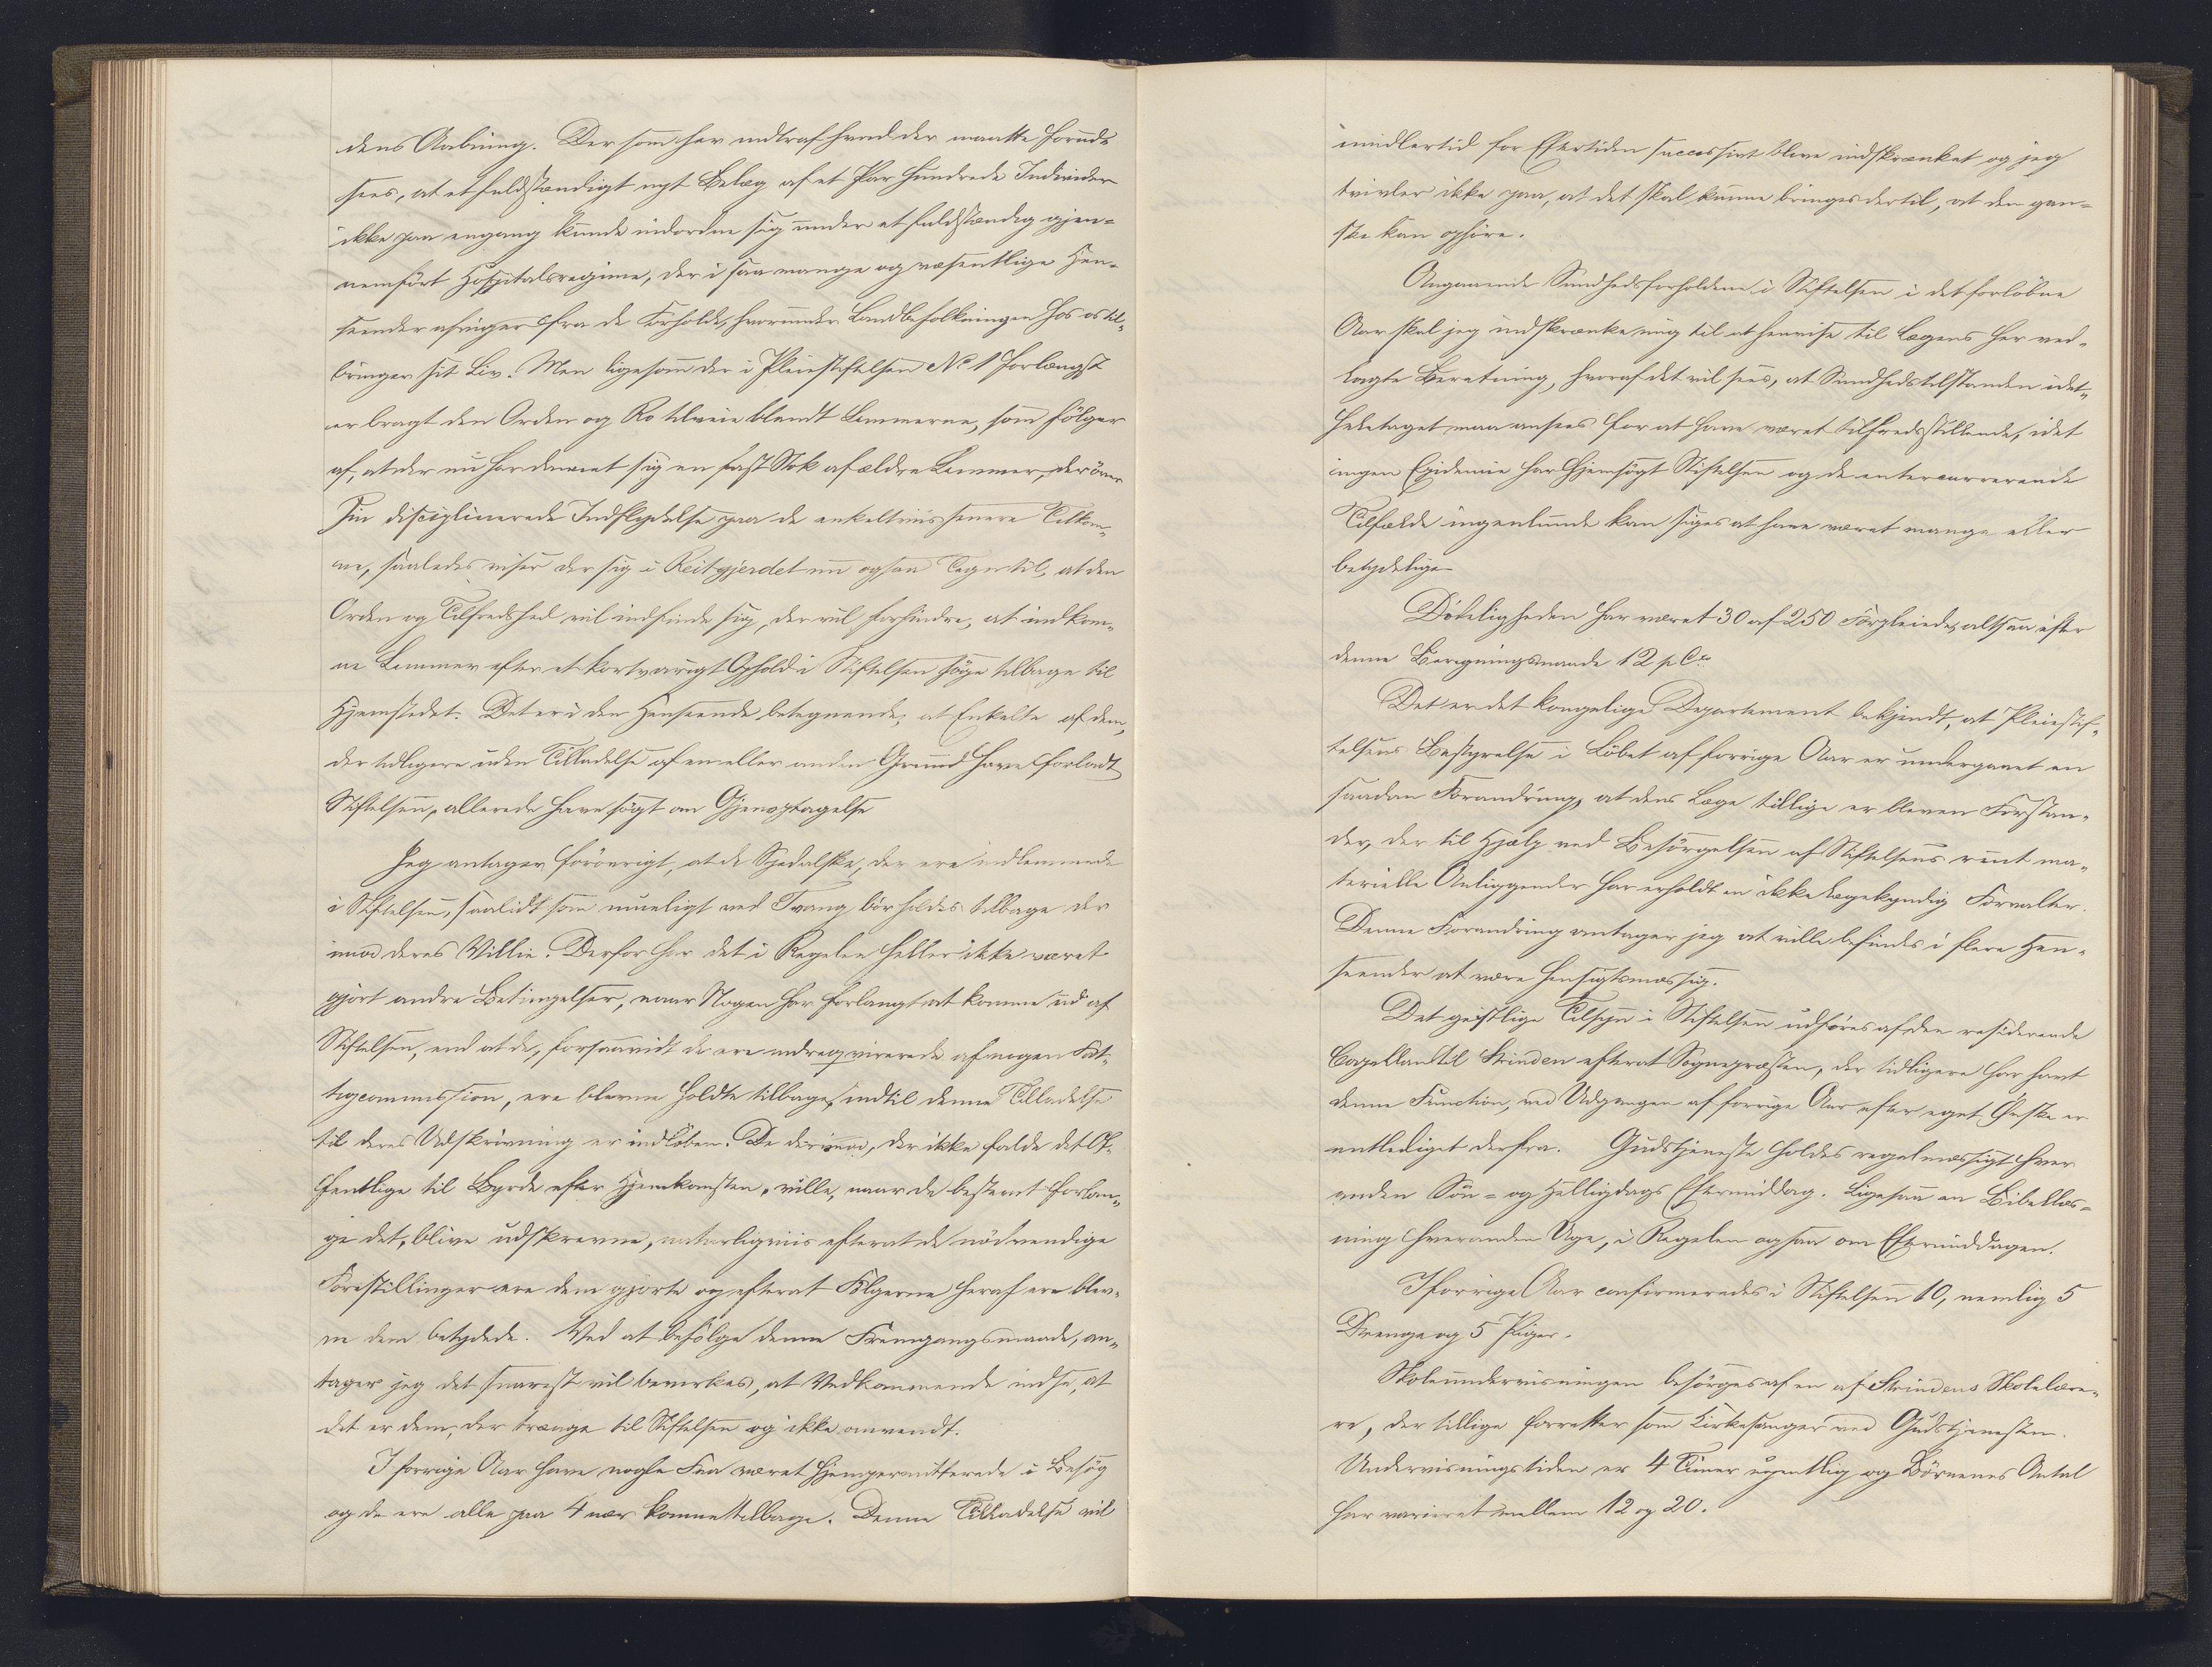 dens Aabning. Der som her indtraf hvad der maatte forud-
sees, at et fuldstændigt nyt Belæg af et Par Hundrede Individer
ikke paa engang kunde indordne sig under et fuldstændig gjen-
nemført Hospitalsregime, der i saa mange og væsentlige Hen-
seender afviger fra de Forholde, hvorunder Landbefolkningen hos os til-
bringer sit Liv. Men ligesom der i Pleiestiftelsen No 1 forlængst
er bragt den Orden og Ro tilveie blandt Lemmerne, som følger
af, at der nu har dannet sig en fast Stok af ældre Lemmer, der øver
sin disciplinerede Indflydelse paa de enkeltviis senere Tilkom-
ne, saaledes viser der sig i Reitgjerdet nu ogsaa Tegn til, at den
Orden og Tilfredshed vil indfinde sig, der vil forhindre, at indkom-
ne Lemmer efter et kortvarigt Ophold i Stiftelsen søge tilbage til
Hjemstedet. Det er i den Henseende betegnende, at Enkelte af dem,
der tidligere uden Tilladelse af en eller anden Grund have forladt
Stiftelsen, allerede have søgt om Gjenoptagelse
Jeg antager forøvrigt, at de Spedalske, der ere indlemmede
i Stiftelsen, saalidt som mueligt ved Tvang bør holdes tilbage der
imod deres Villie. Derfor har det i Regelen heller ikke været
gjort andre Betingelser, naar Nogen har forlangt at komme ud af
Stiftelsen, end at de, forsaavidt de ere indreqvirerede af nogen Fat-
tigcommission, ere blevne holdte tilbage, indtil denne Tilladelse
til deres Udskrivning er indløben. De derimod, der ikke falde det Of-
fentlige til Byrde efter Hjemkomsten, ville, naar de bestemt forlan-
ge det, blive udskrevne, naturligviis efterat de nødvendige
Forestillinger ere dem gjorte og efterat Følgerne heraf ere blev-
ne dem betydede. Ved at befølge denne Fremgangsmaade, an-
tager jeg det snarest vil bevirkes, at Vedkommende indse, at
det er dem, der trænge til Stiftelsen og ikke omvendt.
I forrige Aar have nogle Faa været hjempermitterede i Besøg
og de ere alle paa 4 nær komne tilbage. Denne Tilladelse vil
imidlertid for Eftertiden successivt blive indskrænket og jeg
tvivler ikke paa, at det skal kunne bringes dertil, at den gan-
ske kan ophøre.
Angaaende Sundhedsforholdene i Stiftelsen i det forløbne
Aar skal jeg indskrænke mig til at henvise til Lægens her ved-
lagte Beretning, hvoraf det vil sees, at Sundhedstilstanden idet-
heletaget maa ansees for at have været tilfredsstillende, idet
ingen Epidemie har hjemsøgt Stiftelsen og de intercurrerende
Tilfælde ingenlunde kan siges at have været mange eller
betydelige
Dødeligheden har været 30 af 250 Forpleiede, altsaa efter
denne Beregningsmaade 12 p Ct.
Det er det kongelige Departement bekjendt, at Pleiestif-
telsens Bestyrelse i Løbet af forrige Aar er undergaaet en
saadan Forandring, at dens Læge tillige er bleven Forstan-
der, der til Hjælp ved Besørgelsen af Stiftelsens reent ma-
terielle Anliggender har erholdt en ikke lægekyndig Forvalter.
Denne Forandring antager jeg at ville befindes i flere Hen-
seender at være hensigtsmæssig.
Det geistlige Tilsyn i Stiftelsen udføres af den residerende
Capellan til Strinden efterat Sognepræsten, der tidligere har havt
denne Function, ved Udgangen af forrige Aar efter eget Ønske er
entlediget derfra. Gudstjeneste holdes regelmæssigt hver
anden Søn- og Helligdags Eftermiddag. Ligesaa en Bibellæs-
ning hveranden Uge, i Regelen ogsaa om Eftermiddagen.
I forrige Aar confirmeredes i Stiftelsen 10, nemlig 5
Drenge og 5 Piger.
Skoleundervisningen besørges af en af Strindens Skolelære-
re, der tillige forretter som Kirkesanger ved Gudstjenesten.
Undervisningstiden er 4 Timer ugentlig og Børnenes Antal
har varieret mellem 12 og 20.